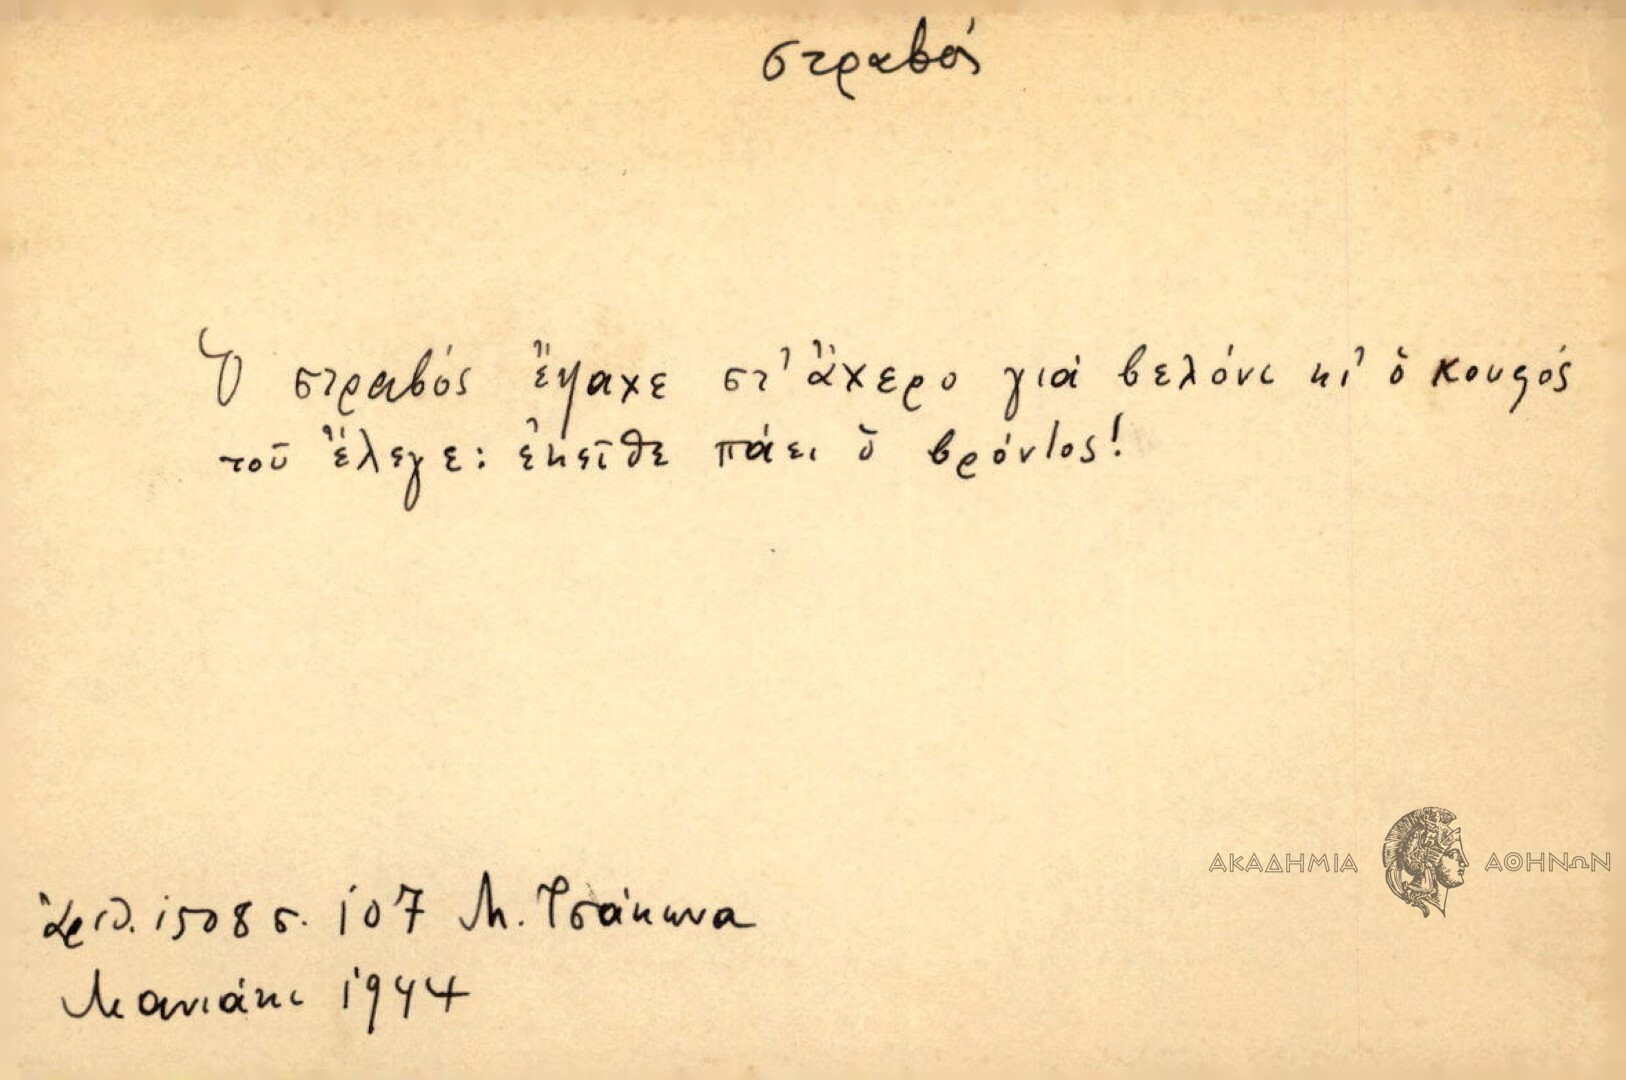 στραβός
Ὁ στραβός ἔψαχε στ' ἄχερο γιά βελόνι κι' ὁ κουφός
τοῦ ἔλεγε: ἐκεῖθε πάει ὁ βρόντος!
ΑΚΑΔΗΜΙΑ ΑΘΗΝΩΝ
Ἀριθ. 1508 σ. 107 Μ. Τσάκωνα
Μανιάκι 1944